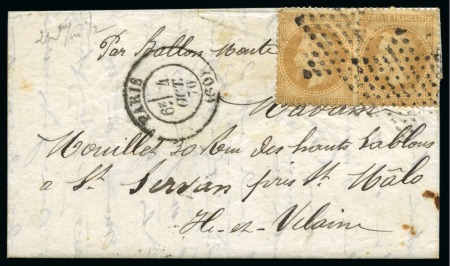 Par Ballon Monté
PARIS
(60)
70
Madame
Mouillet 30 Rue des hauts Sablons
à St. Servan près St. Mâlo
Ile-et-Vilaine